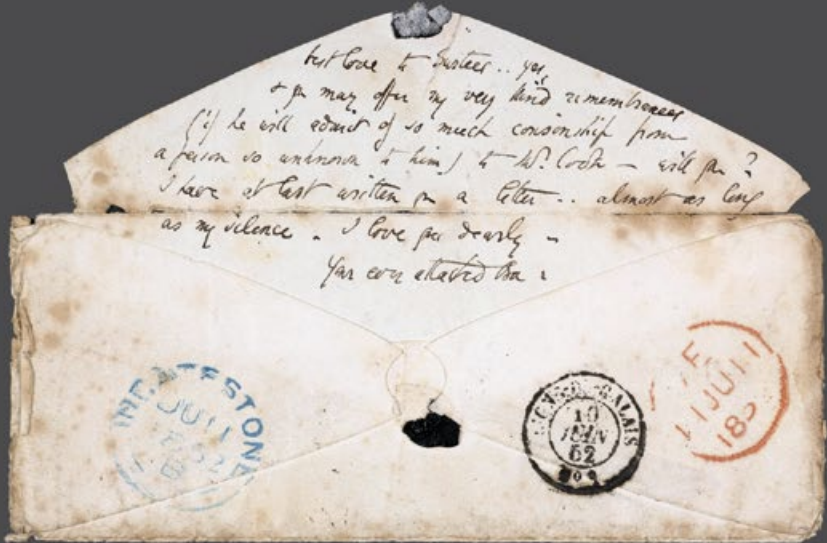 best love to Surtees .. yes,
& you may offer my very kind remembrances
(if he will admit of so much cousinship from
a person so unknown to him) to Mr. Cook – will you?
I have at last written you a letter .. almost as long
as my silence . I love you dearly –
Your ever attached Ba .
INGATESTONE
JU 11
1852
CALAIS
10
JUIN
52
11 JU 11
185